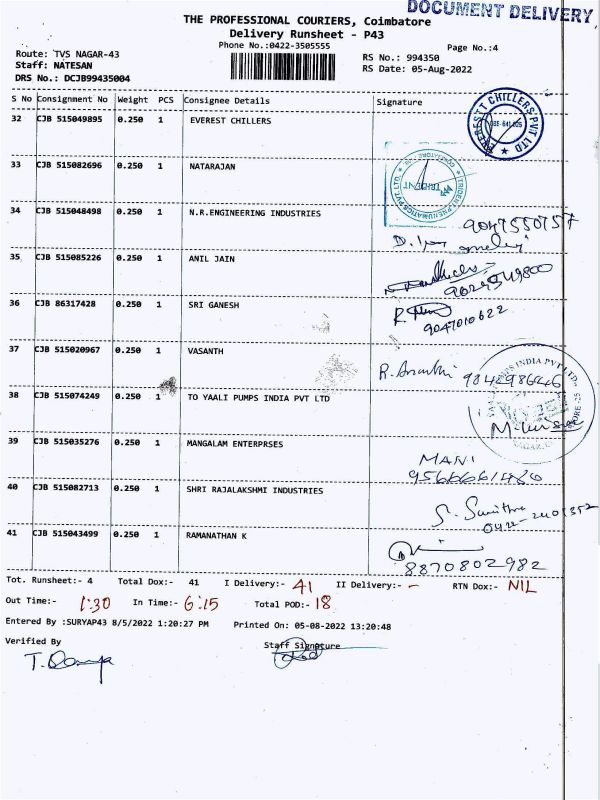 DOCUMENT DELIVERY
THE PROFESSIONAL COURIERS, Coimbatore
Delivery Runsheet - P43
Phone No.:0422-3505555
Page No.:4
Route: TVS NAGAR-43
Staff: NATESAN
DRS No.: DCJB99435004
RS No.: 994350
RS Date: 05-Aug-2022
S No Consignment No Weight PCS Consignee Details Signature
32 CJB 515049895 0.250 1 EVEREST CHILLERS
33 CJB 515082696 0.250 1 NATARAJAN
34 CJB 515048498 0.250 1 N.R.ENGINEERING INDUSTRIES
9047550757
35 CJB 515085226 0.250 1 ANIL JAIN
36 CJB 86317428 0.250 1 SRI GANESH
9047010622
37 CJB 515020967 0.250 1 VASANTH
9842986646
38 CJB 515074249 0.250 1 TO YAALI PUMPS INDIA PVT LTD
39 CJB 515035276 0.250 1 MANGALAM ENTERPRSES
MANI
40 CJB 515082713 0.250 1 SHRI RAJALAKSHMI INDUSTRIES
41 CJB 515043499 0.250 1 RAMANATHAN K
8870802982
Tot. Runsheet:- 4 Total Dox:- 41 I Delivery:- 41 II Delivery:- - RTN Dox:- NIL
Out Time:- 1:30 In Time:- 6:15 Total POD:- 18
Entered By :SURYAP43 8/5/2022 1:20:27 PM Printed On: 05-08-2022 13:20:48
Verified By Staff Signature